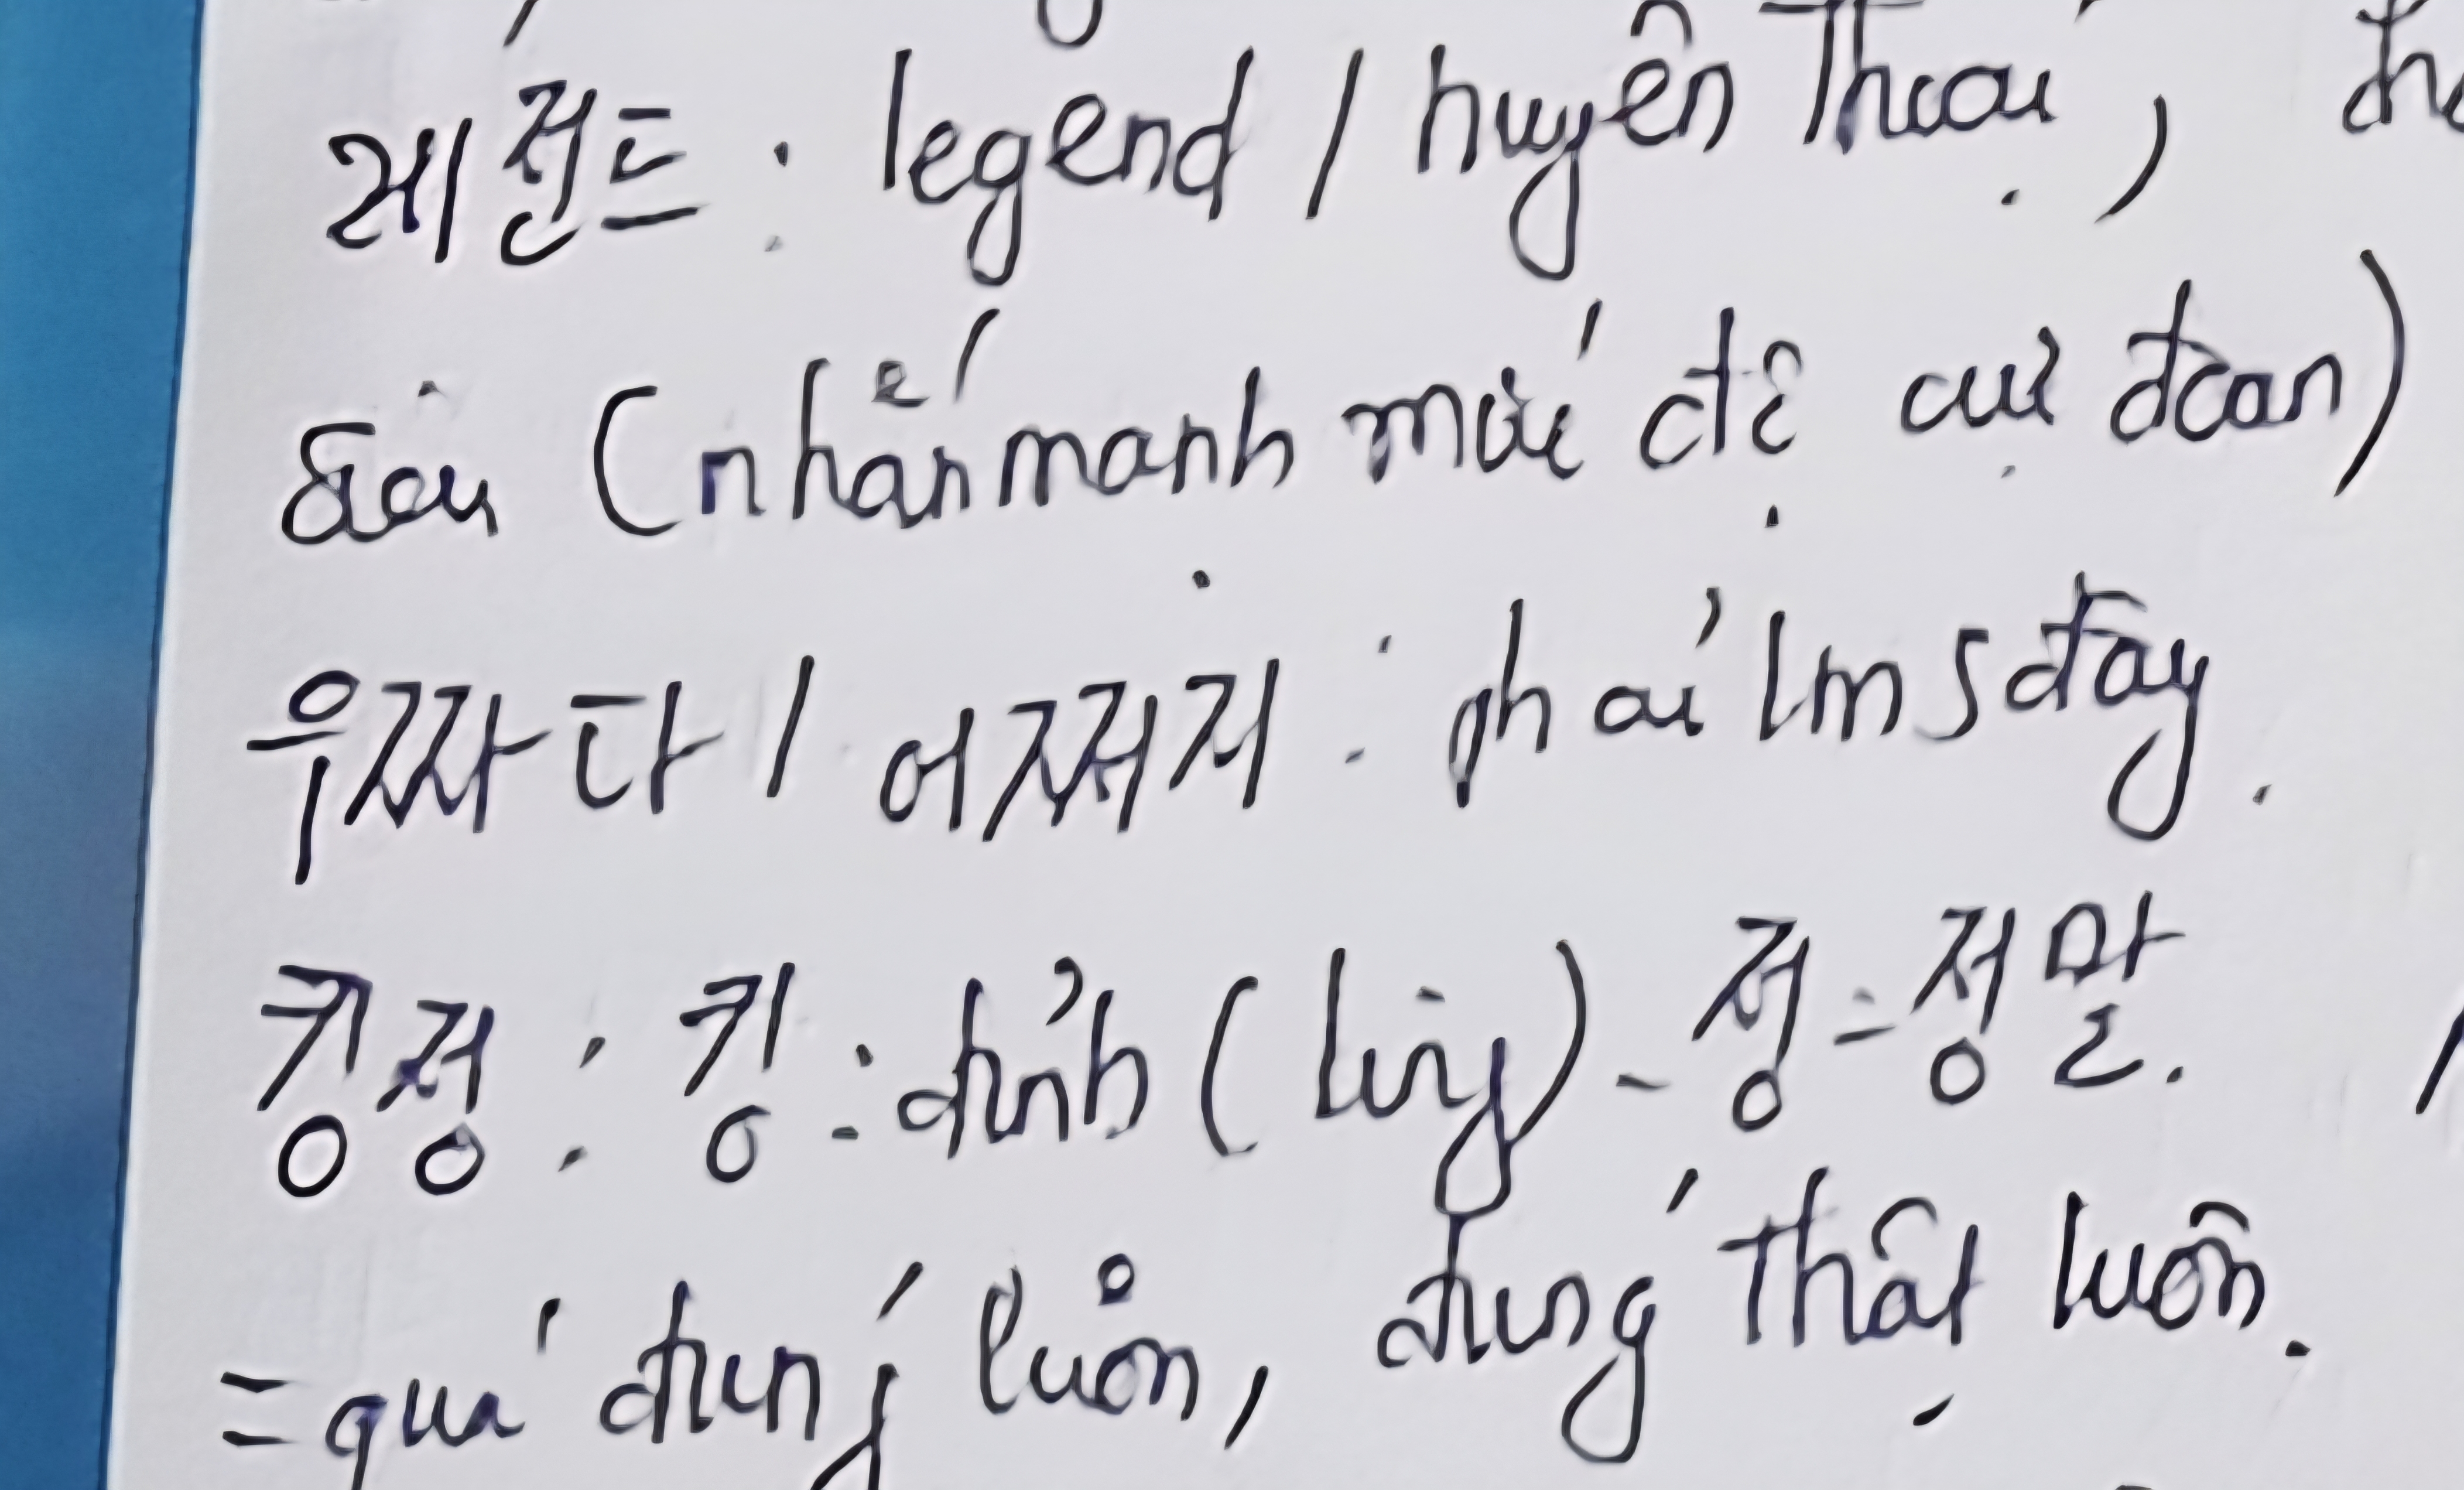 레전드 : legend / huyền thoại,
sâu (nhấn mạnh mức độ cực đoan)
우짜다 / 어쩌지 : phải lm s đây.
킹정 : 킹 : đỉnh ( ) - 정 = 정말.
= quá đúng luôn, đúng thật luôn.